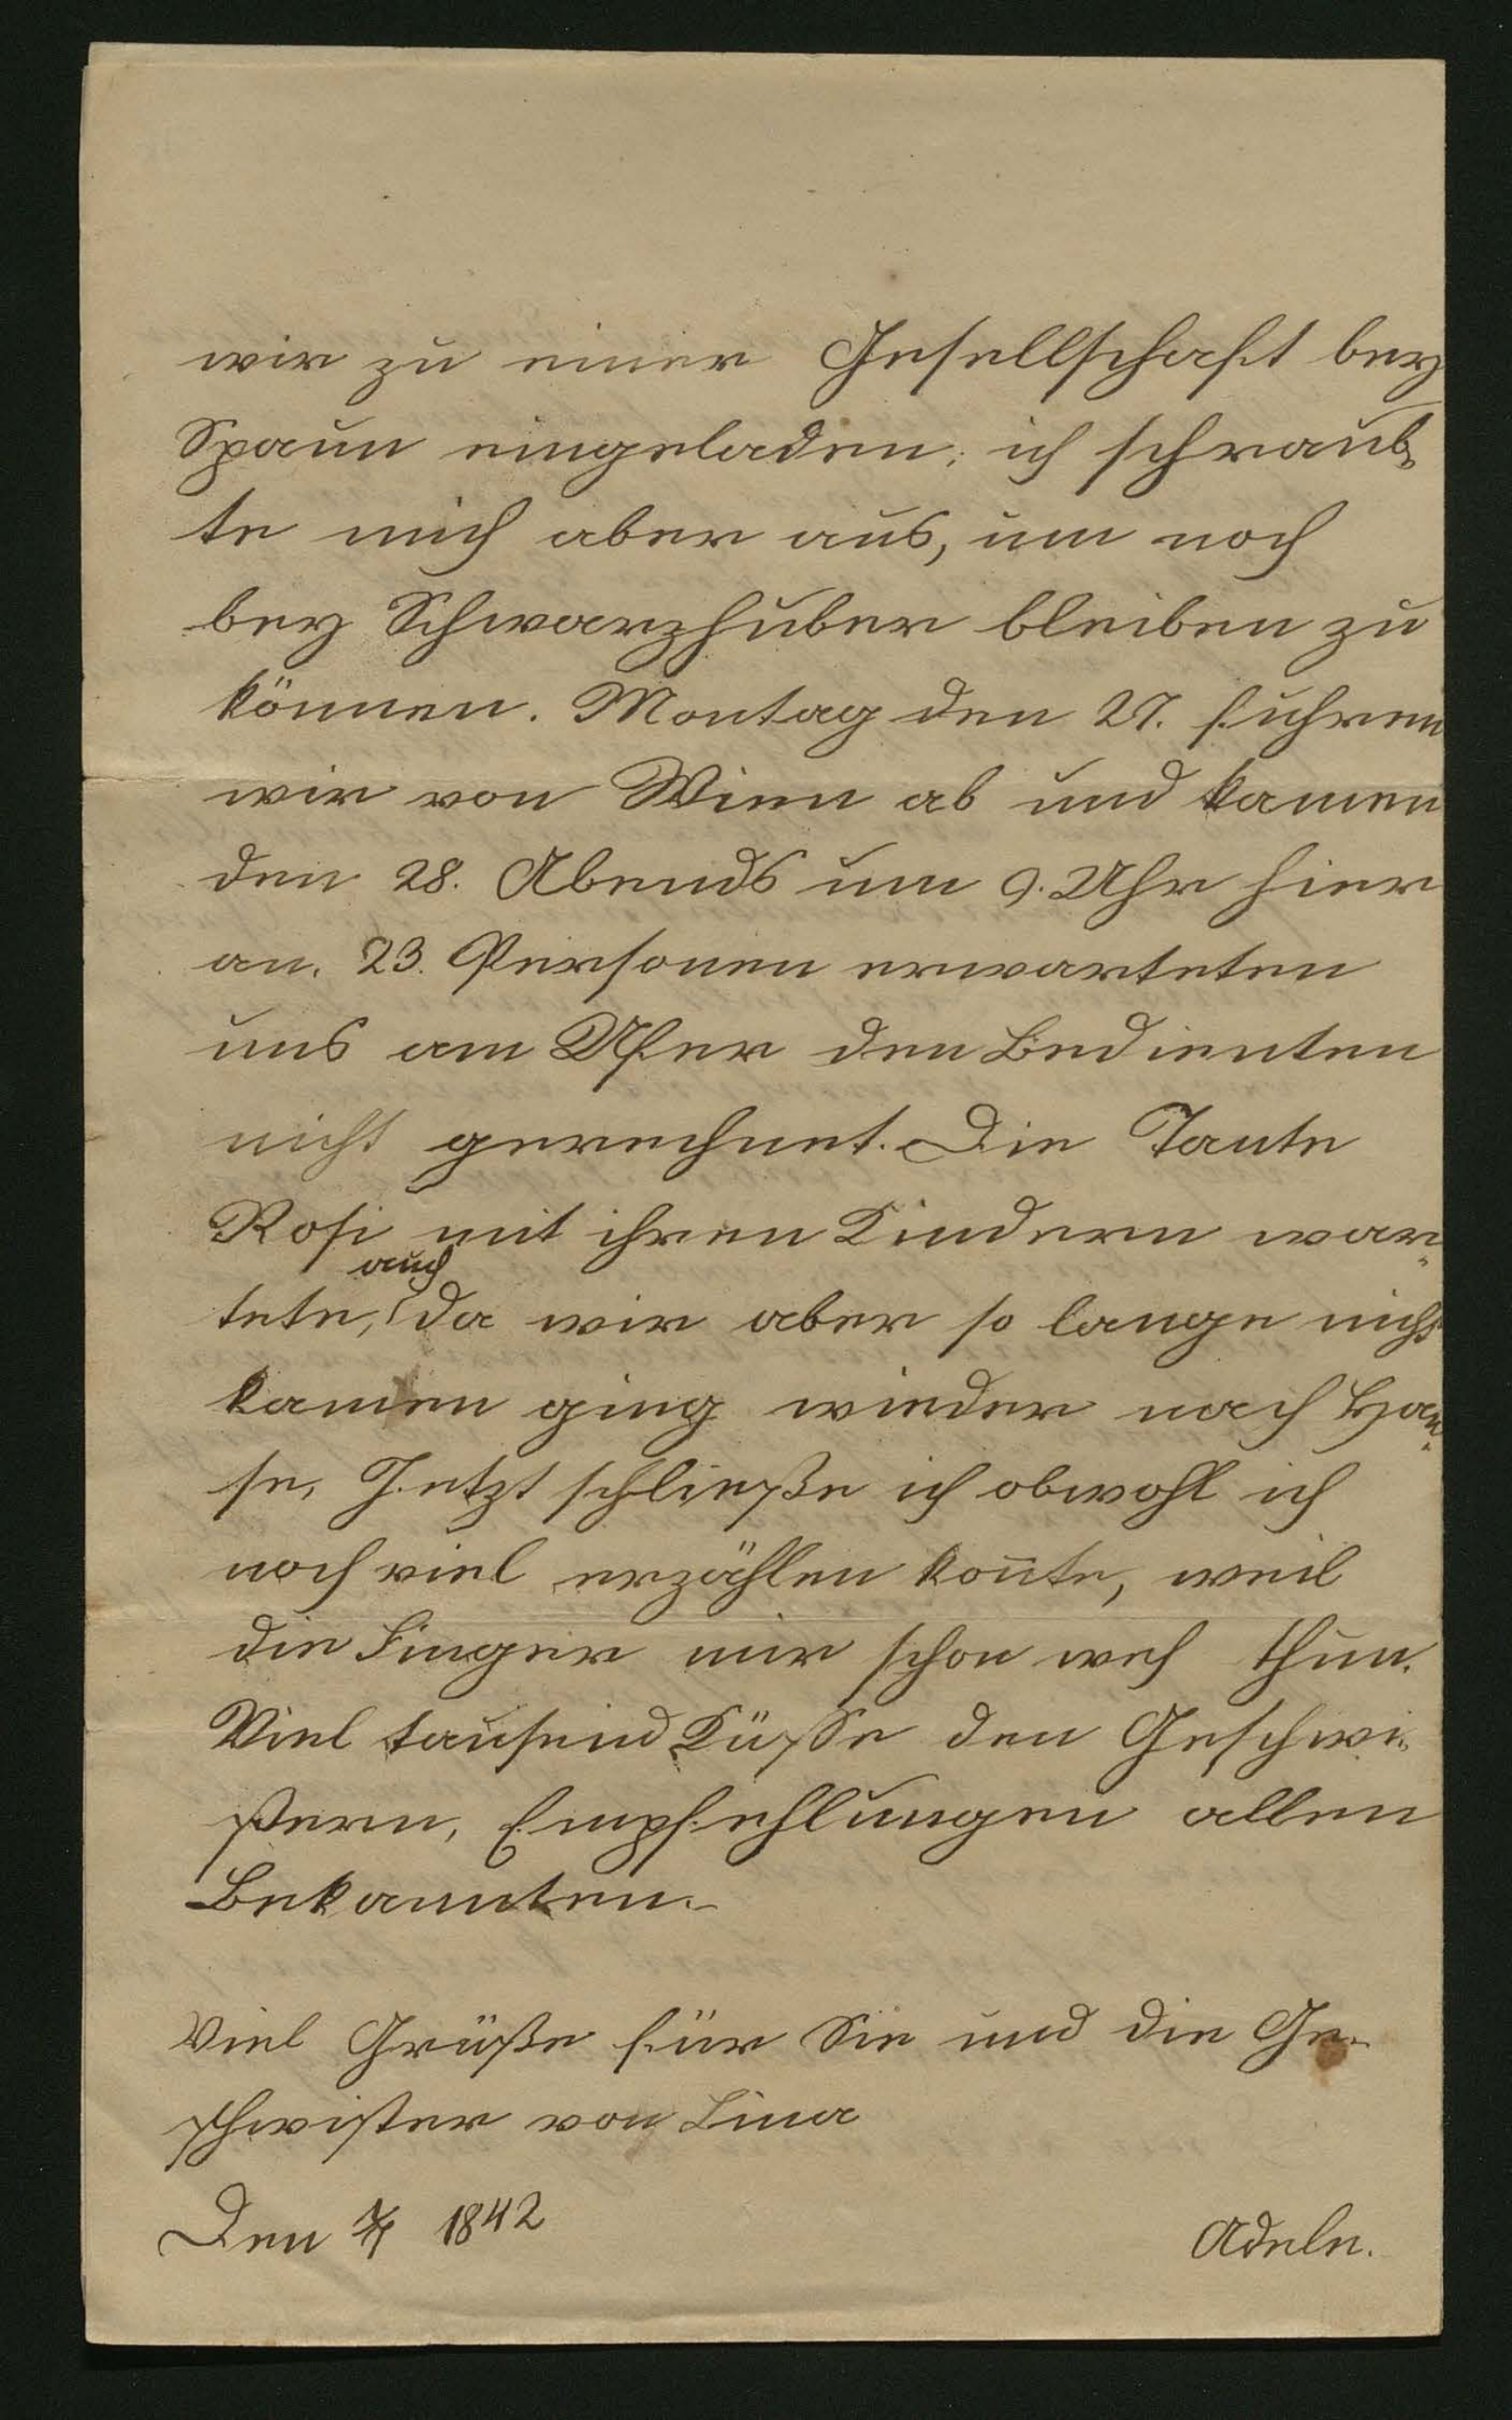 wir zu einer Gesellschaft bey
Spaun eingeladen; ich schraub-
te mich aber aus, um noch
bey Schwarzhuber bleiben zu
können. Montag den 27. fuhren
wir von Wien ab und kamen
den 28. Abends um 9. Uhr hier
an. 23. Personen erwarteten
uns am Ufer den Bedienten
nicht gerechnet. Die Tante
Rosi mit ihren Kindern war-
auch
tete, da wir aber so lange nicht
kamen ging wieder nach Hau-
se. Jetzt schließe ich obwohl ich
noch viel erzählen kon̄te, weil
die Finger mir schon weh thun.
Viel tausend Küsse den Geschwi-
stern, Empfehlungen allen
Bekannten.
Viel Grüße für Sie und die Ge-
schwister von Lina
Den 1842
Adele.